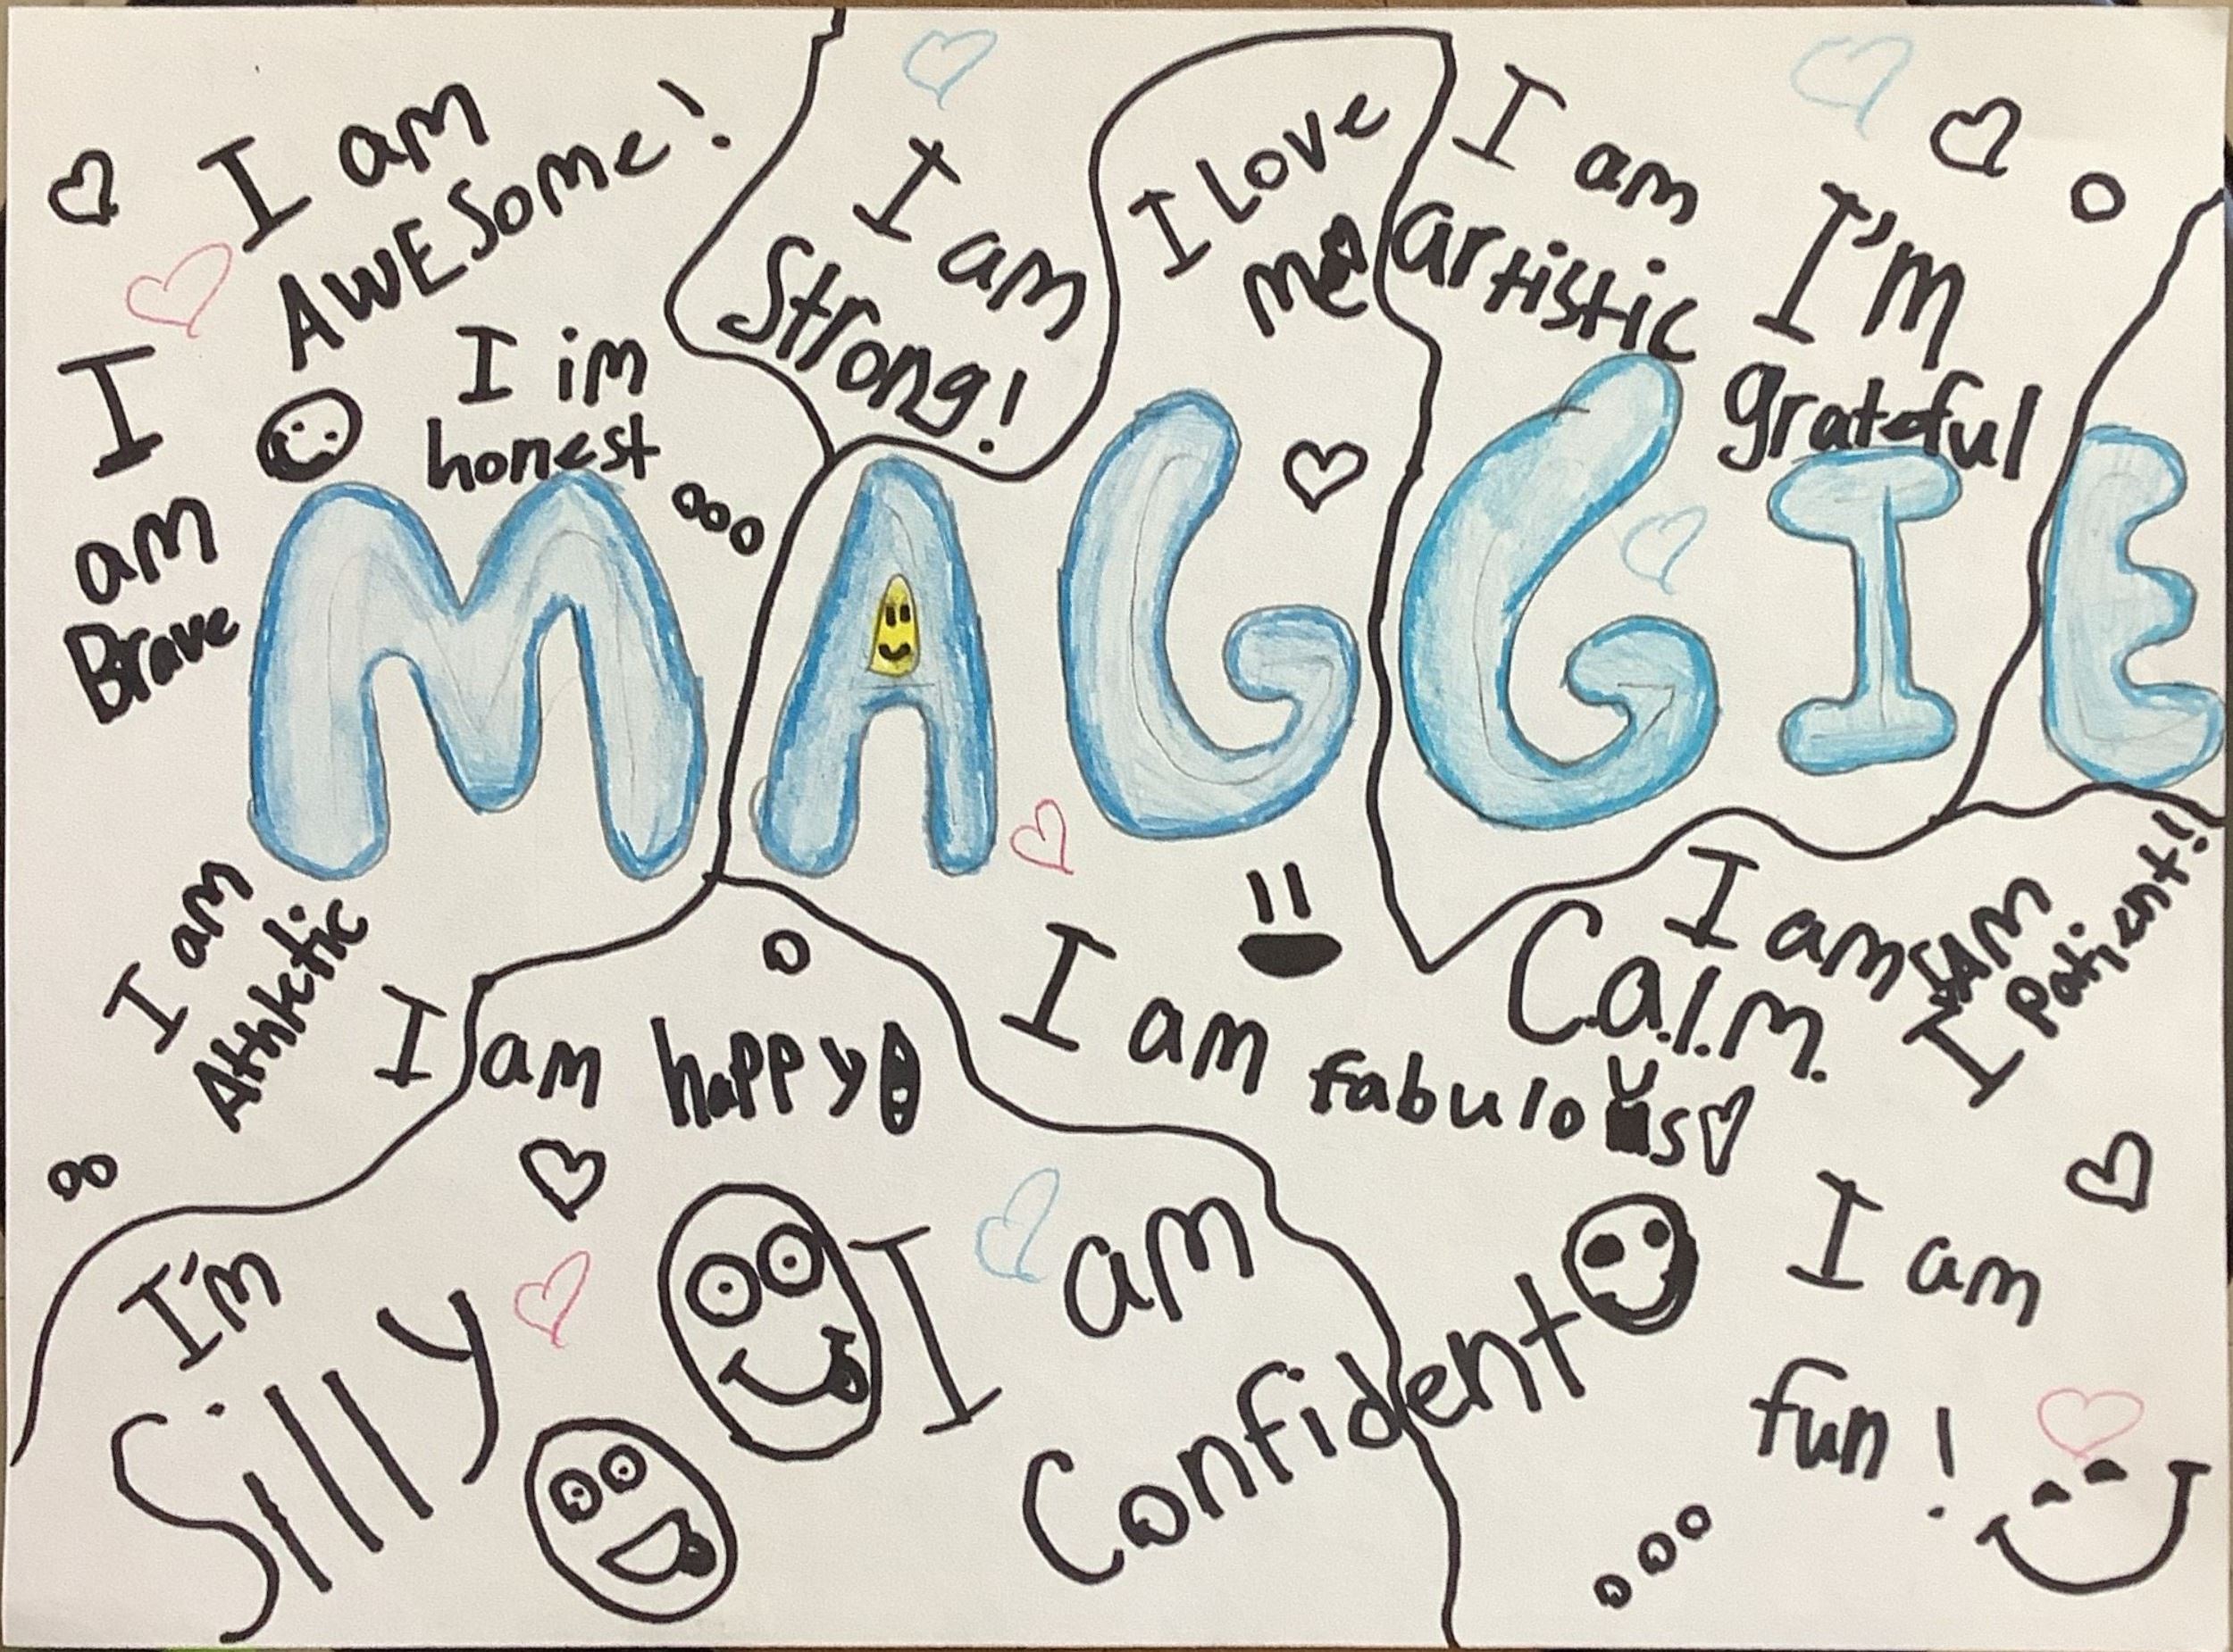 I am
AWESome!
I am
Strong!
I Love
me
I am
artistic
I'm
grateful
I im
honest
I
am
Brave
MAGGIE
I am
Athletic
I am happy
I am fabulous
I am
C.a.l.m.
I am
Patient!!
I'm
Silly
I am
Confident
I am
fun!